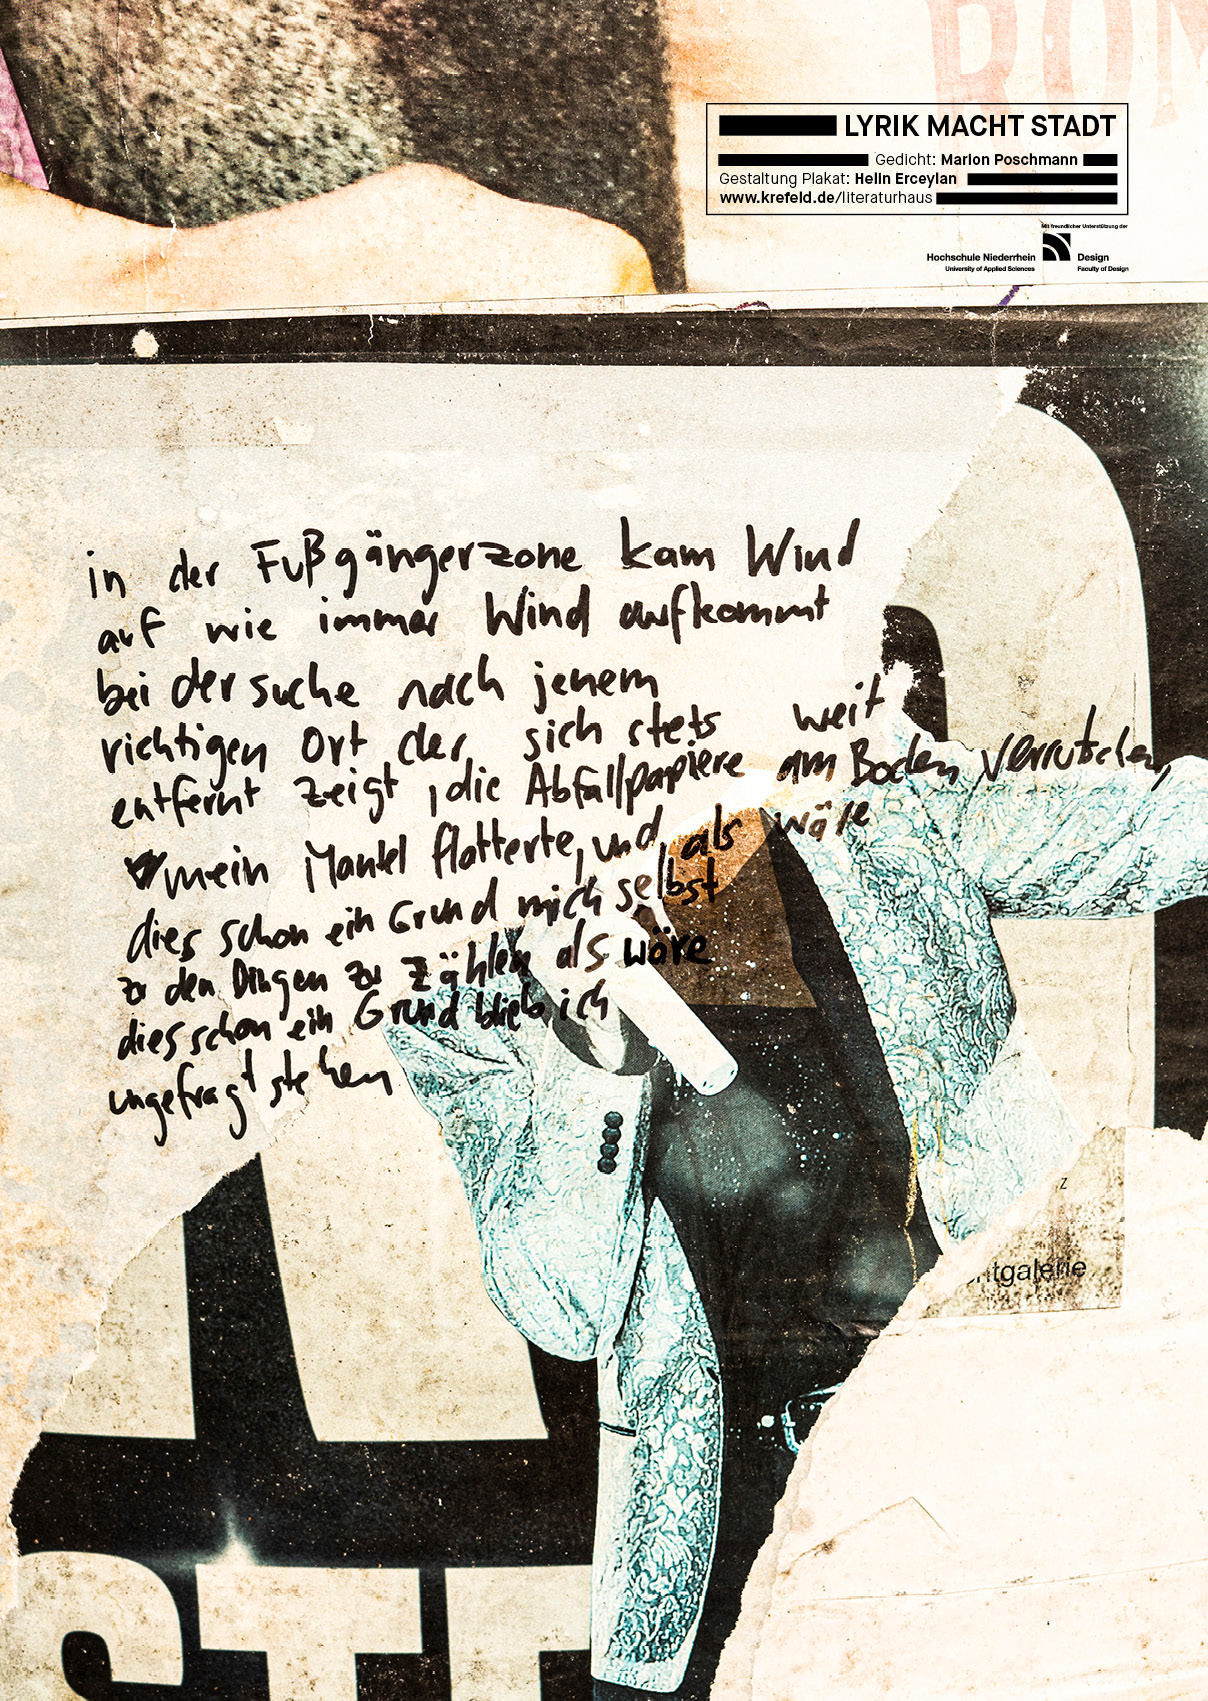 ROM
LYRIK MACHT STADT
Gedicht: Marion Poschmann
Gestaltung Plakat: Helin Erceylan
www.krefeld.de/literaturhaus
Mit freundlicher Unterstützung der
Hochschule Niederrhein
University of Applied Sciences
Design
Faculty of Design
in der Fußgängerzone kam Wind
auf wie immer Wind aufkommt
bei der suche nach jenem
richtigen Ort der sich stets weit
entfernt zeigt, die Abfallpapiere am Boden verrutschen,
mein Mantel flatterte, und, als wäre
dies schon ein Grund mich selbst
zu den Dingen zu zählen als wäre
dies schon ein Grund blieb ich
ungefragt stehen
z
ntgalerie
STE